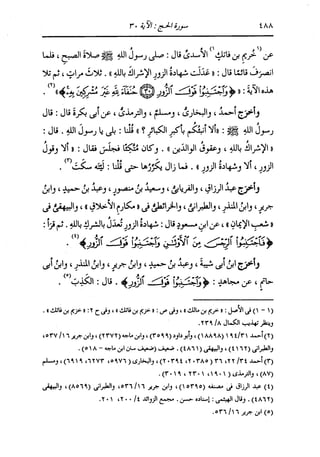 ٤٨٨ سورة الحج : الآية ٣٠
عن (١)خريم بن فاتك(١) الأسدىِّ قال : صلى رسول الله ﷺ صلاة الصبح ، فلما
انصرف قائمًا قال : « عَدَلَت شهادةُ الزورِ الإشراكَ باللهِ » . ثلاث مراتٍ ، ثم تلا
هذه الآية : ﴿وَاجْتَنِبُوا قَوْلَ الزُّورِ (٣٠) حُنَفَاءَ لِلَّهِ غَيْرَ مُشْرِكِينَ بِهِ﴾(٢) .
وأخرَج أحمدُ ، والبخارىُّ ، ومسلمٌ ، والترمذىُّ ، عن أبى بَكرةَ قال : قال
رسول الله ﷺ : « ألا أنبِّئُكم بأكبرِ الكبائرِ ؟ » قلنا : بلى يا رسول الله . قال :
« الإشراكُ باللهِ ، وعقوقُ الوالدَين » . وكان مُتَّكئًا فجلَس فقال : « ألا وقولُ
الزورِ ، ألا وشهادةُ الزورِ » . فما زال يكرِّرُها حتى قلنا : ليتَه سكَت(٣) .
وأخرَج عبدُ الرزاقِ ، والفريابىُّ ، وسعيدُ بنُ منصورٍ ، وعبدُ بنُ حميدٍ ، وابنُ
جريرٍ ، وابنُ المنذرِ ، والطبرانىُّ ، والخرائطىُّ فى « مكارمِ الأخلاقِ » ، والبيهقىُّ فى
« شعبِ الإيمانِ » ، عن ابنِ مسعودٍ قال : شهادةُ الزورِ تُعدَلُ بالشركِ باللهِ . ثم قرأ :
﴿فَاجْتَنِبُوا الرِّجْسَ مِنَ الْأَوْثَانِ وَاجْتَنِبُوا قَوْلَ الزُّورِ﴾(٤) .
وأخرَج ابنُ أبى شيبةَ ، وعبدُ بنُ حميدٍ ، وابنُ جريرٍ ، وابنُ المنذرِ ، وابنُ أبى
حاتمٍ ، عن مجاهدٍ : ﴿وَاجْتَنِبُوا قَوْلَ الزُّورِ﴾ . قال : الكذبَ(٥) .
(١ - ١) فى الأصل : « خريم بن مالك » ، وفى ص : « خزيم بن فاتك » ، وفى ح ٢ : « خزيم بن فاتك » .
وينظر تهذيب الكمال ٨/ ٢٣٩.
(٢) أحمد ٣١/ ١٩٤ (١٨٨٩٨) ، وأبو داود (٣٥٩٩) ، وابن ماجه (٢٣٧٢) ، وابن جرير ١٦/ ٥٣٧،
والطبرانى (٤١٦٢) ، والبيهقى (٤٨٦١) . ضعيف (ضعيف سنن ابن ماجه - ٥١٨) .
(٣) أحمد ٣٤/ ٢٢، ٣٦ (٢٠٣٨٥ ، ٢٠٣٩٤) ، والبخارى (٥٩٧٦ ، ٦٢٧٣ ، ٦٩١٩) ، ومسلم
(٨٧) ، والترمذى (١٩٠١ ، ٢٣٠١ ، ٣٠١٩) .
(٤) عبد الرزاق فى مصنفه (١٥٣٩٥) ، وابن جرير ١٦/ ٥٣٦، والطبرانى (٨٥٦٩) ، والبيهقى
(٤٨٦٢) . وقال الهيثمى : إسناده حسن . مجمع الزوائد ٤/ ٢٠٠ ، ٢٠١.
(٥) ابن جرير ١٦/ ٥٣٦.